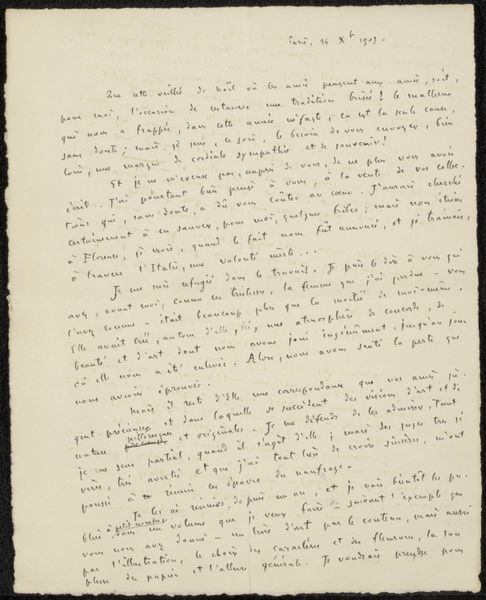 Paris, 24 Xb 1903.
Que cette veillée de Noël où les amis pensent aux amis, soit,
pour moi, l'occasion de restaurer une tradition brisée! Le malheur
qui nous a frappés, dans cette année néfaste, en est la seule cause,
sans doute; mais je sens, ce soir, le besoin de vous envoyer, bien
loin, une marque de cordiale sympathie et de souvenir!
Et je ne m'excuse pas, auprès de vous, de ne plus vous avoir
écrit. J'ai pourtant bien pensé à vous, à la vente de vos collec-
tions qui, sans doute, a dû vous coûter au cœur. J'aurais cherché
certainement à en sauver, pour moi, quelque bribe; mais nous étions
à Florence, je crois, quand le fait nous fût annoncé, et je traînais,
à travers l'Italie, une volonté morte...
Je me suis réfugié dans le travail. Je puis le dire à vous qui
avez, avant moi, connu cette tristesse, la femme que j'ai perdue — vous
l'avez connue — était beaucoup plus que la moitié de moi-même.
Elle avait créé, autour d'elle, ici, une atmosphère de concorde, de
beauté et d'art dont nous avons joui ingénûment, jusqu'au jour
où elle nous a été enlevée. Alors, nous avons senti la perte que
nous avions éprouvée.
Mais il reste d'Elle une correspondance que nos amis ju-
gent précieuse et dans laquelle se succèdent des visions d'art et de
nature pittoresques et originales. Je me défends de les admirer, tant
je me sens partial, quand il s'agit d'elle; mais des juges très sé-
vères, très avertis et que j'ai tout lieu de croire sincères, m'ont
poussé à réunir les épaves du naufrage.
Je les ai réunies, depuis un an, et je vais bientôt les pu-
blier, à petit nombre, dans un volume que je veux faire — suivant l'exemple que
vous nous avez donné — un livre d'art par le contenu, mais aussi
par l'illustration, le choix des caractères et des fleurons, la sou-
plesse du papier et l'allure générale. Je voudrais prendre pour